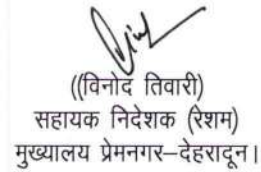 ((विनोद तिवारी)
सहायक निदेशक (रेशम)
मुख्यालय प्रेमनगर–देहरादून।